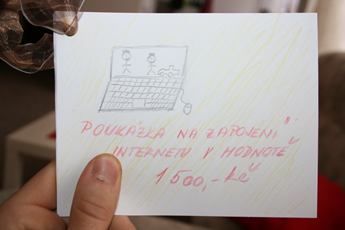 POUKÁZKA NA ZAPOJENÍ
INTERNETU V HODNOTĚ
1 500,- Kč